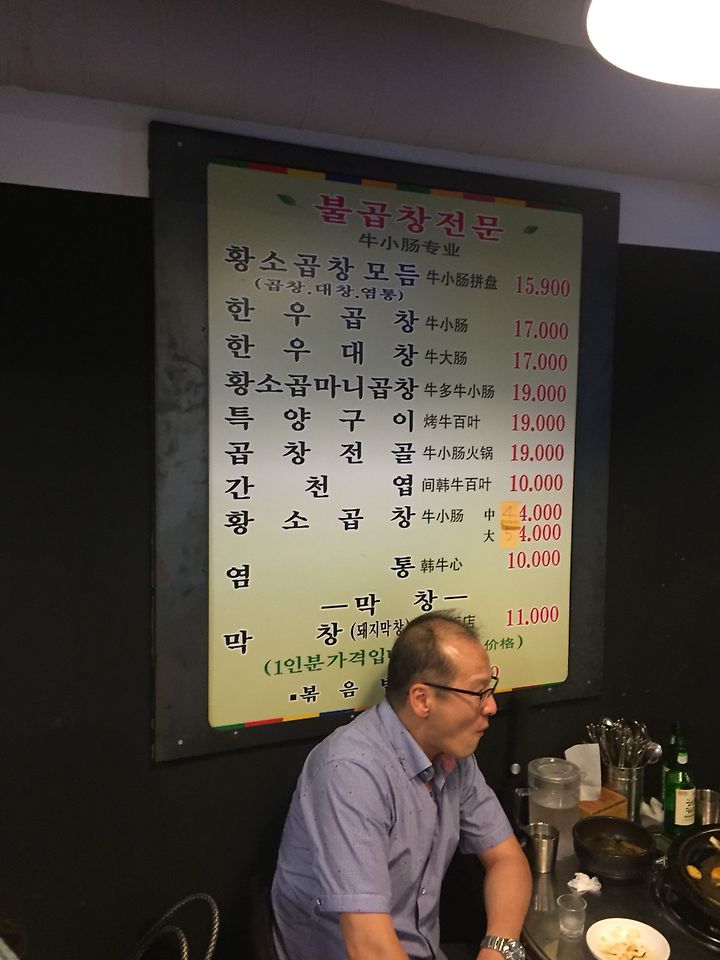 불곱창전문
牛小肠专业
황소곱창모듬 牛小肠拼盘 15.900
(곱창.대창.염통)
한우곱창 牛小肠 17.000
한우대창 牛大肠 17.000
황소곱마니곱창 牛多牛小肠 19.000
특양구이 烤牛百叶 19.000
곱창전골 牛小肠火锅 19.000
간천엽 间韩牛百叶 10.000
황소곱창 牛小肠 中 44.000
大 54.000
염통 韩牛心 10.000
—막창—
막창(돼지막창) 店 11.000
(1인분가격입 价格)
■볶음